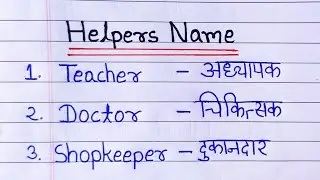 Helpers Name
1. Teacher - अध्यापक
2. Doctor - चिकित्सक
3. Shopkeeper - दुकानदार